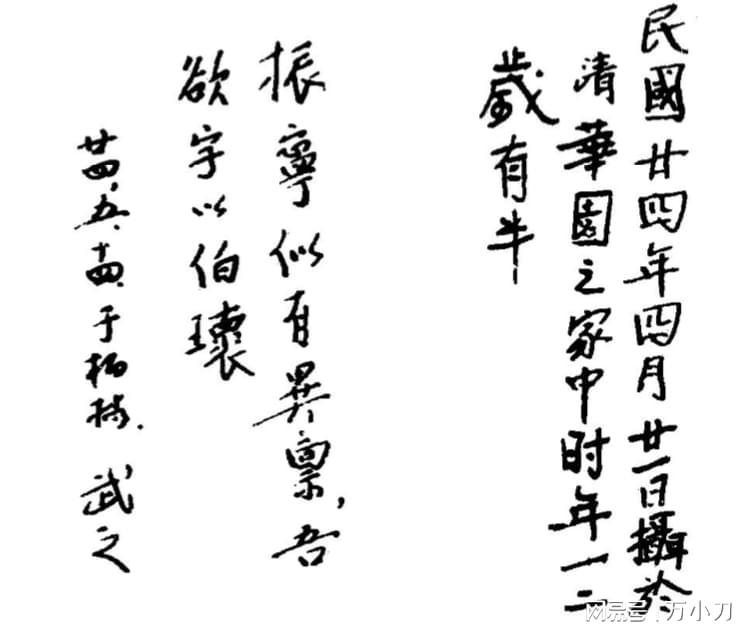 民國廿四年四月廿一日攝於
清華園之家中時年一二
歲有半
振寧似有異稟,吾
欲字以伯瓌
廿四、五、十四、于柏林. 武之
网易号/万小刀